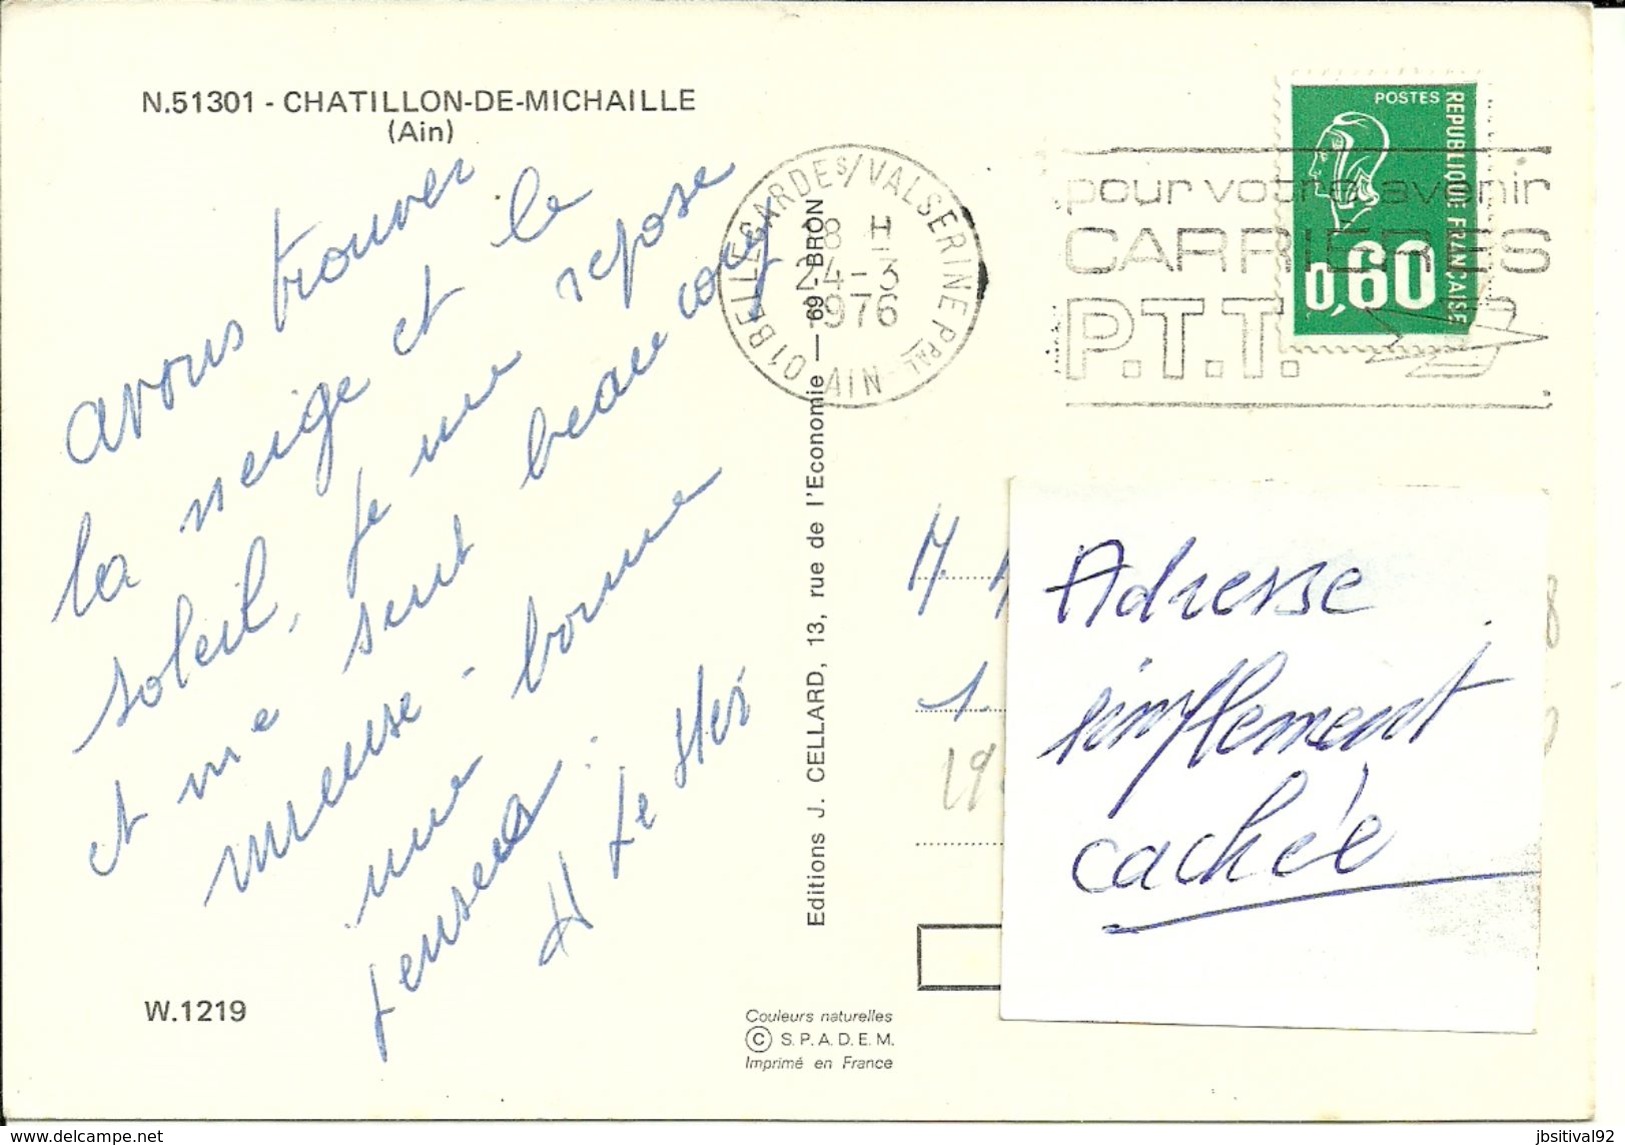 N.51301 - CHATILLON-DE-MICHAILLE
(Ain)
avons trouver
la neige et le
soleil, je me repose
et me sent beaucoup
mieuse - bonne
une
pensée.
W.1219
Editions J. CELLARD, 13, rue de l'Economie — 69 - BRON
Couleurs naturelles
© S.P.A.D.E.M.
Imprimé en France
01 BELLEGARDE S/VALSERINE PPAL - AIN
18 H
24-3
1976
pour votre avenir
CARRIERES
P.T.T.
POSTES
REPUBLIQUE FRANÇAISE
0,60
Adresse
simplement
cachée
delcampe.net
jbsitival92